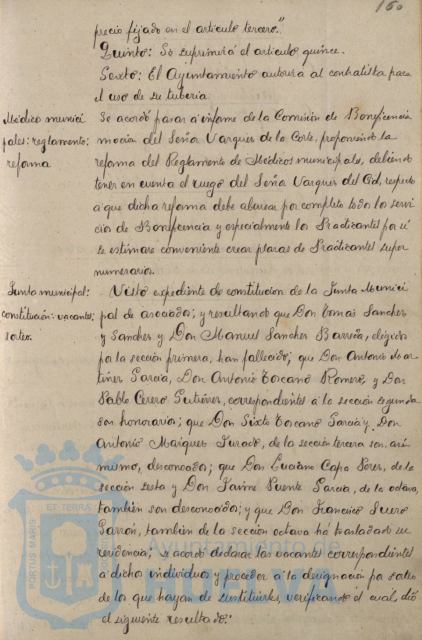 160
precio fijado en el artículo tercero."
Quinto: Se suprimirá el artículo quince.
Sexto: El Ayuntamiento autoriza al contratista para
el uso de su tubería
Médico munici
pales: reglamento:
reforma
Se acordó pasar a informe de la Comisión de Beneficencia
moción del Señor Vazquez de la Corte, proponiendo la
reforma del Reglamento de Médicos municipales, debiendo
tener en cuenta el ruego del Señor Vazquez del Cid, respecto
a que dicha reforma debe abarcar por completo todo lo servi
cio de Beneficencia y especialmente los Practicantes por si
se estimare conveniente crear plazas de Practicantes super
numerarios.
Junta municipal:
constitución: vacantes:
sorteo.
Visto expediente de constitución de la Junta Munici
pal de asociados; y resultando que Don Tomás Sanchez
y Sanchez y Don Manuel Sanchez Barreda, elegidos
por la sección primera, han fallecido; que Don Antonio
García, Don Antonio Toscano Romero, y Don
Pablo Cerero Gutiérrez, correspondientes á la sección segunda
son honorarios; que Don Sixto Toscano García y Don
Antonio Marquez Jurado, de la sección tercera son, asi
mismo, desconocidos; que Don Luciano Capa Peres, de la
sección sexta y Don Jaime Puente García, de la octava,
también son desconocidos; y que Don Francisco Suero
Garrón, también de la sección octava há trasladado su
residencia; se acordó declarar las vacantes correspondientes
a dichos individuos y proceder a la designación por sorteo
de los que hayan de sustituirles, verificando el cual, dió
el siguiente resultado:
PORTUS MARIS
ET TERRAE
Ayuntamiento de
HUELVA